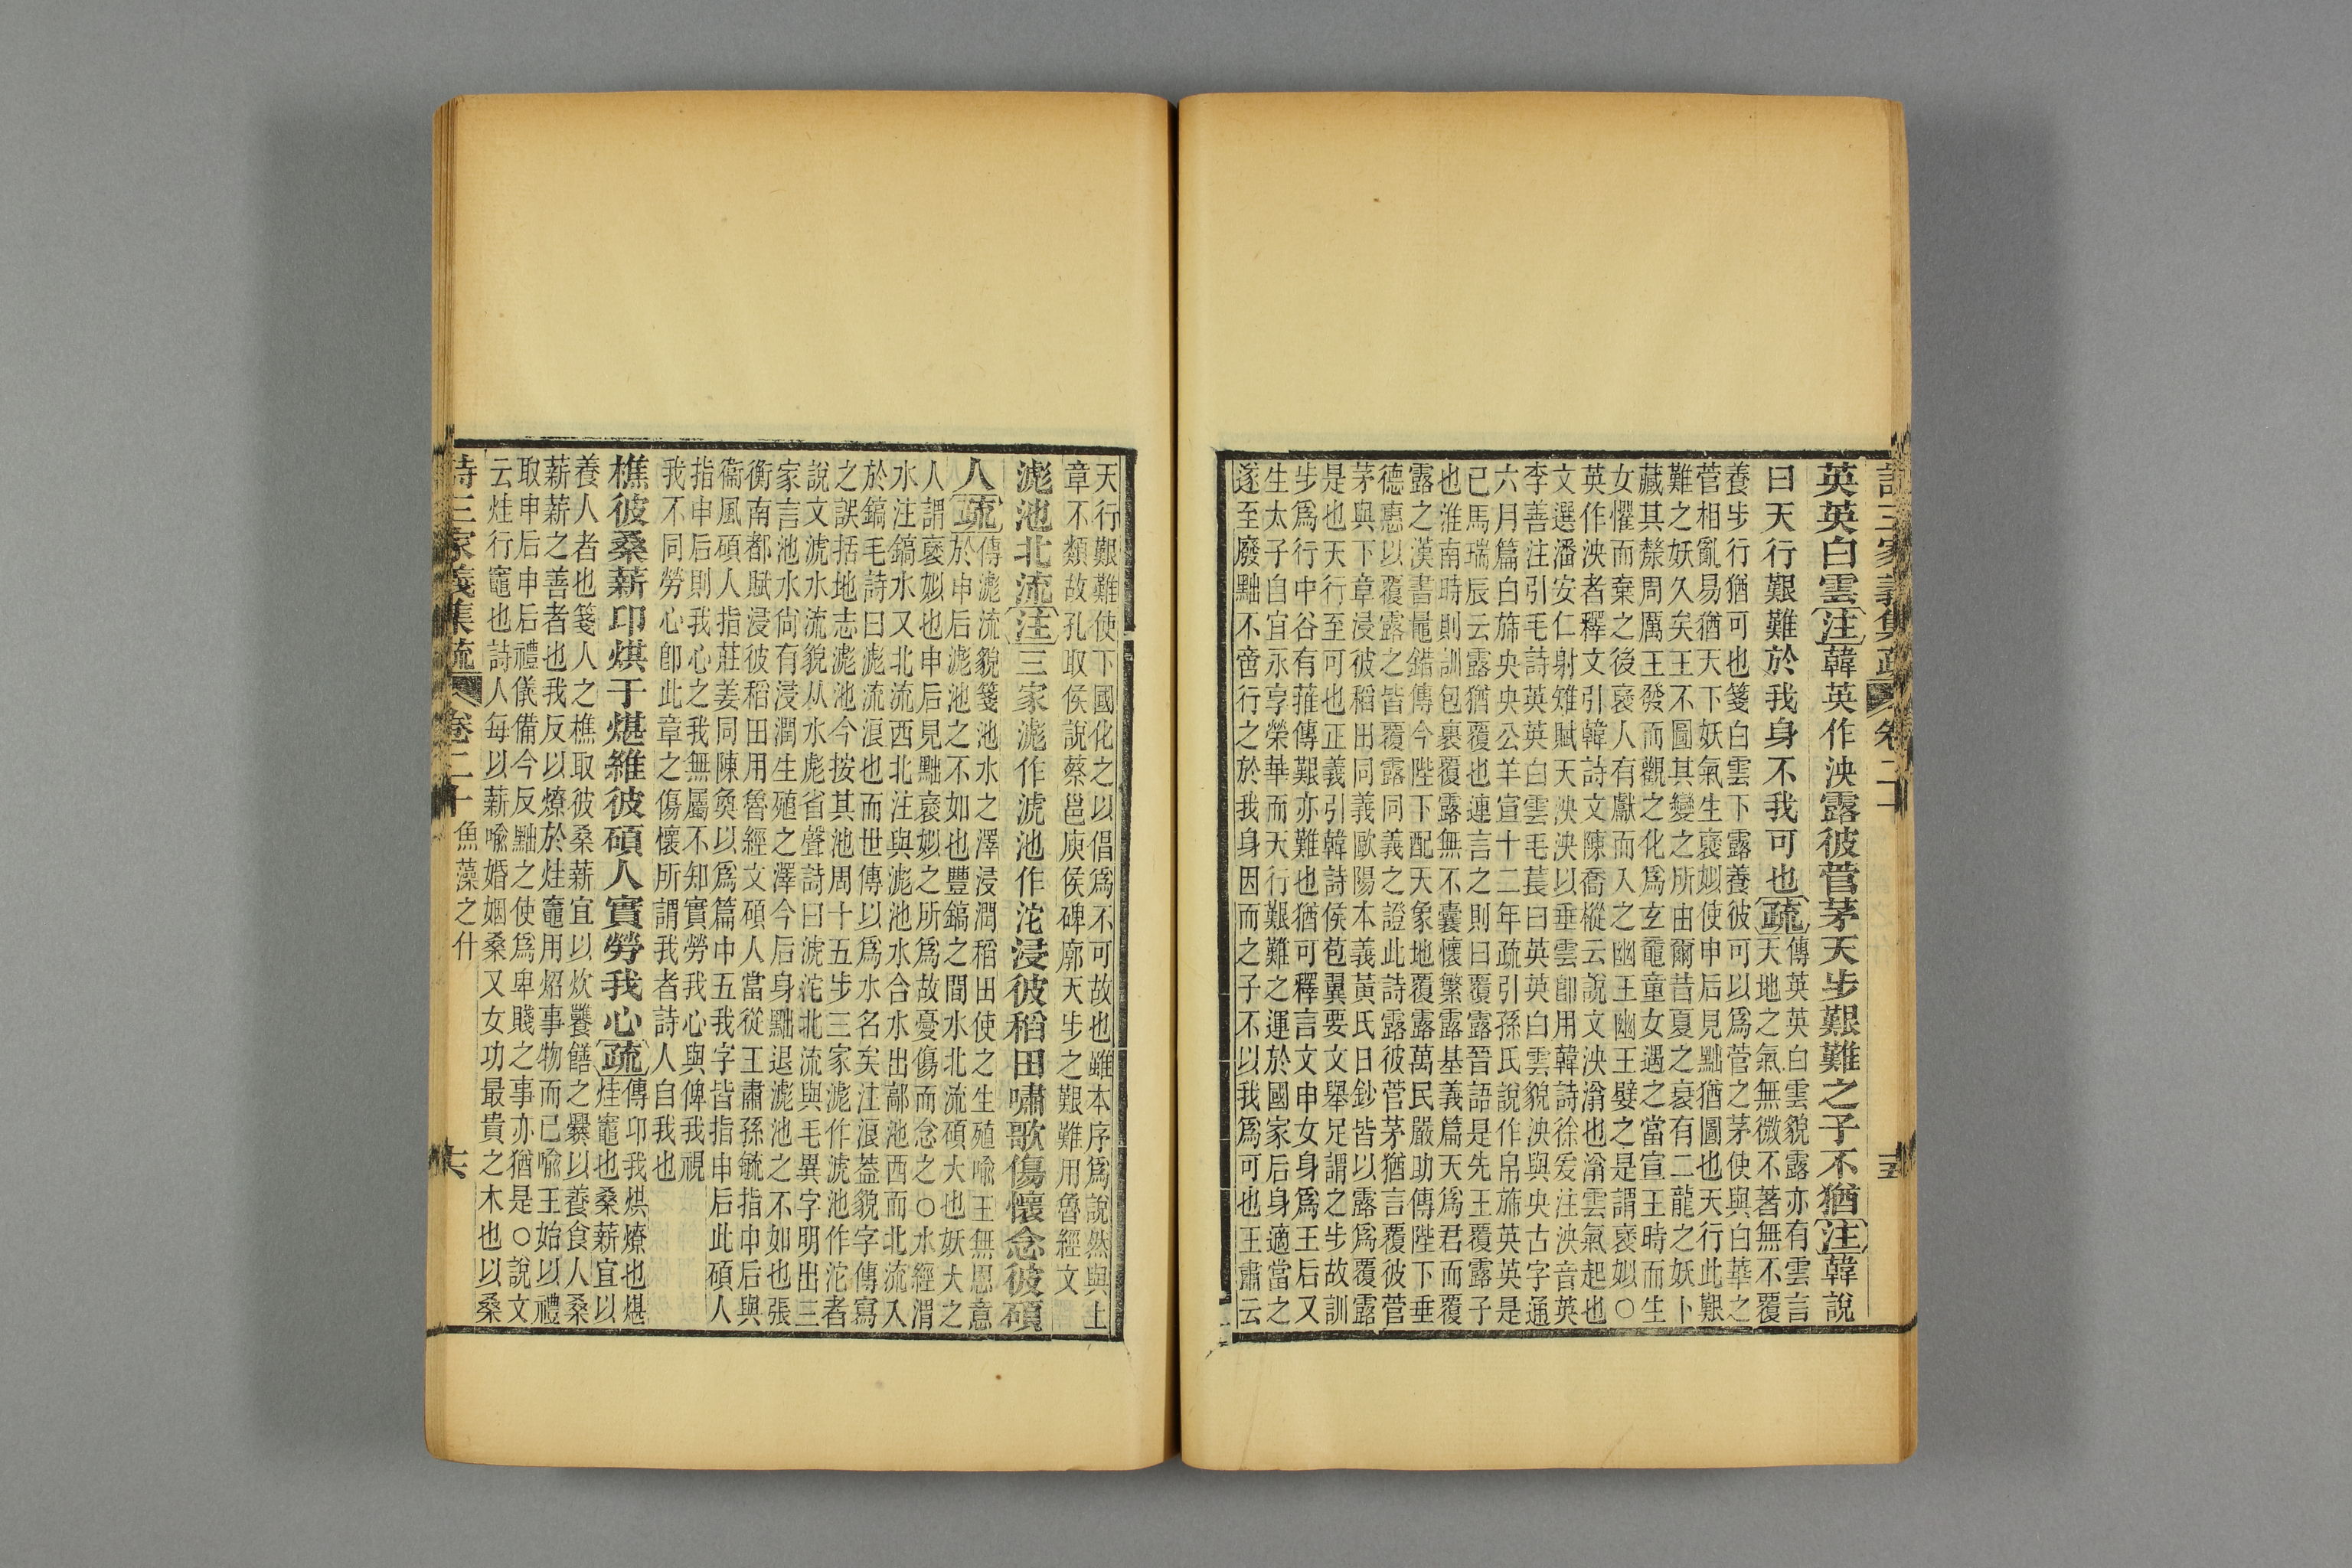 詩三家義集疏 卷二十 十五
英英白雲注韓英作泱露彼菅茅天步艱難之子不猶注韓說
曰天行艱難於我身不我可也疏傳英英白雲貌露亦有雲言
天地之氣無微不著無不覆
養步行猶可也箋白雲下露養彼可以爲菅之茅使與白華之
菅相亂易猶天下妖氣生襃姒使申后見黜猶圖也天行此艱
難之妖久矣王不圖其變之所由爾昔夏之衰有二龍之妖卜
藏其漦周厲王發而觀之化爲玄黿童女遇之當宣王時而生
女懼而棄之後襃人有獻而入之幽王幽王嬖之是謂襃姒○
英作泱者釋文引韓詩文陳喬樅云說文泱滃也滃雲氣起也
文選潘安仁射雉賦天泱泱以垂雲卽用韓詩徐爰注泱音英
李善注引毛詩英英白雲毛萇曰英英白雲貌泱與央古字通
六月篇白旆央央公羊宣十二年疏引孫氏說作帛旆英英是
已馬瑞辰云露猶覆也連言之則曰覆露晉語是先王覆露子
也淮南時則訓包裹覆露無不囊懷繁露基義篇天爲君而覆
露之漢書鼂錯傳今陛下配天象地覆露萬民嚴助傳陛下垂
德惠以覆露之皆覆露同義之證此詩露彼菅茅猶言覆彼菅
茅與下章浸彼稻出同義歐陽本義黃氏日鈔皆以露爲覆露
是也天行至可也正義引韓詩侯苞翼要文舉足謂之步故訓
步爲行中谷有蓷傳艱亦難也猶可釋言文申女身爲王后又
生太子自宜永享榮華而天行艱難之運於國家后身適當之
遂至廢黜不啻行之於我身因而之子不以我爲可也王肅云
天行艱難使下國化之以倡爲不可故也雖本序爲說然與上
章不類故孔取侯說蔡邕庾侯碑廓天步之艱難用魯經文
滮池北流注三家滮作淲池作沱浸彼稻田嘯歌傷懷念彼碩
人疏傳滮流貌箋池水之澤浸潤稻田使之生殖喩王無恩意
於申后滮池之不如也豐鎬之間水北流碩大也妖大之
人謂襃姒也申后見黜襃姒之所爲故憂傷而念之○水經渭
水注鎬水又北流西北注與滮池水合水出鄗池西而北流入
於鎬毛詩曰滮流浪也而世傳以爲水名矣注浪葢貌字傳寫
之誤括地志滮池今按其池周十五步三家滮作淲池作沱者
說文淲水流貌从水彪省聲詩曰淲沱北流與毛異字明出三
家言池水尙有浸潤生殖之澤今后身黜退滮池之不如也張
衡南都賦浸彼稻田用魯經文碩人當從王肅孫毓指申后與
衞風碩人指莊姜同陳奐以爲篇中五我字皆指申后此碩人
指申后則我心之我無屬不知實勞我心與俾我視
我不同勞心卽此章之傷懷所謂我者詩人自我也
樵彼桑薪卬烘于煁維彼碩人實勞我心疏傳卬我烘燎也煁
烓竈也桑薪宜以
養人者也箋人之樵取彼桑薪宜以炊饔饎之爨以養食人桑
薪薪之善者也我反以燎於烓竈用炤事物而已喩王始以禮
取申后申后禮儀備今反黜之使爲卑賤之事亦猶是○說文
云烓行竈也詩人每以薪喩婚姻桑又女功最貴之木也以桑
詩三家義集疏 卷二十 魚藻之什 十六